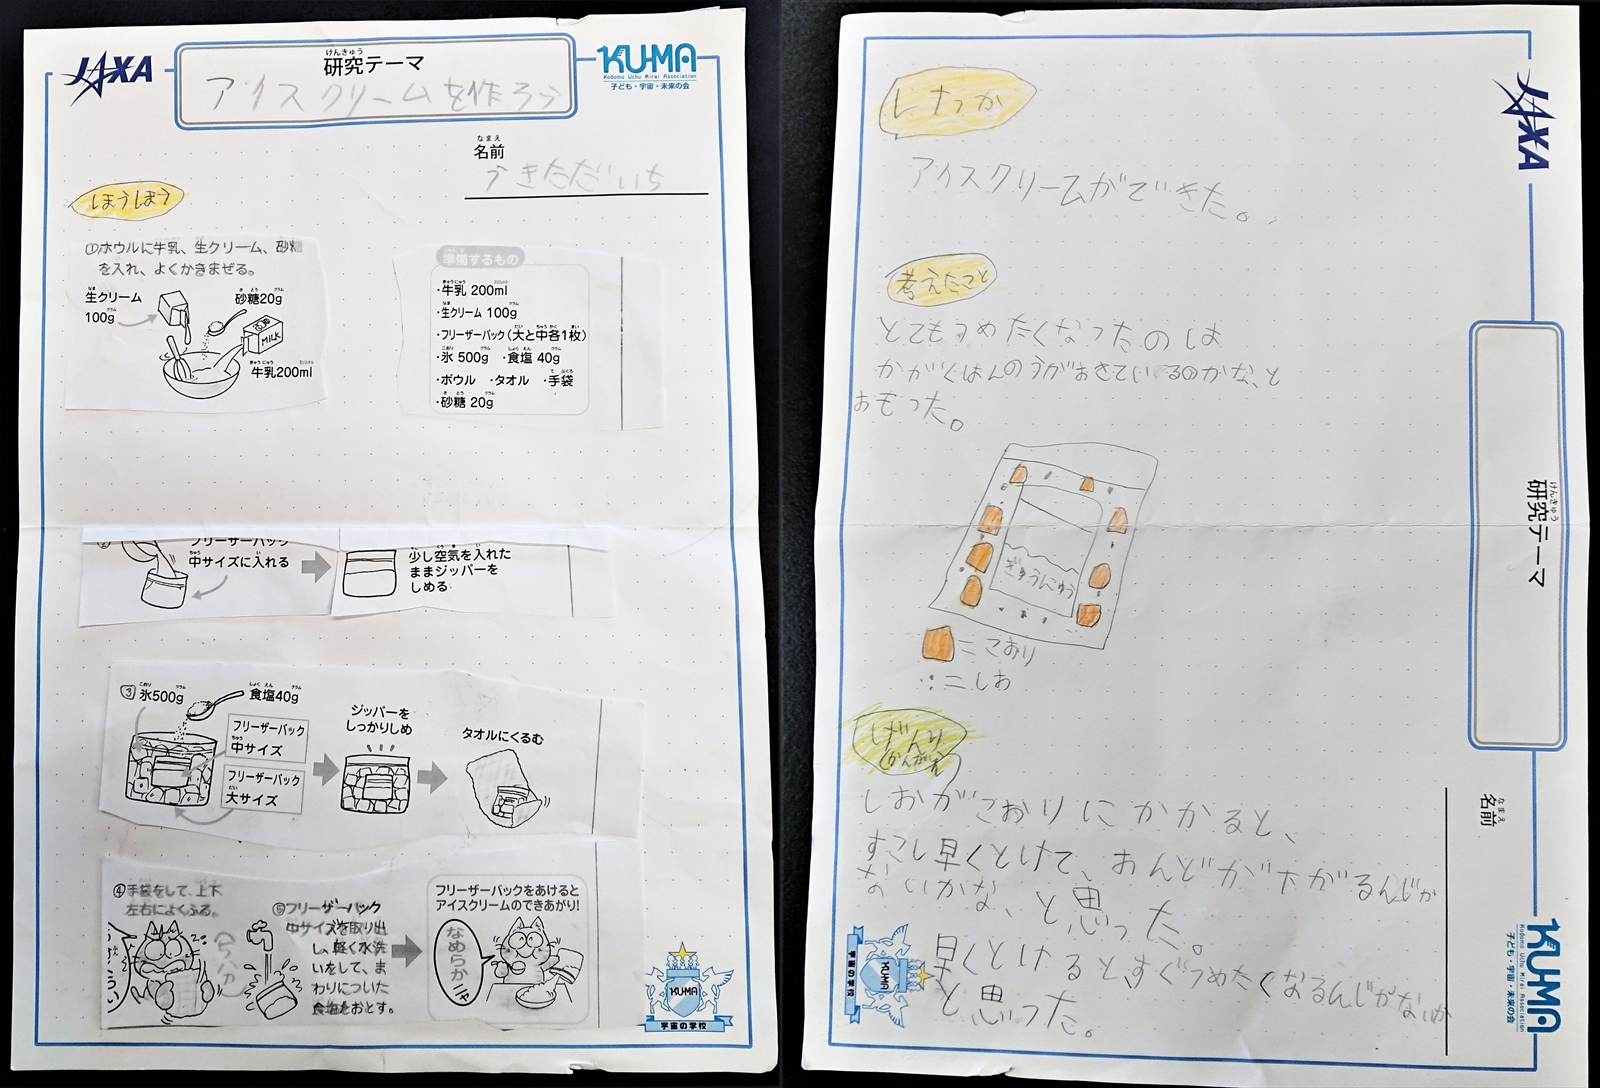 JAXA
けんきゅう
研究テーマ
アイスクリームを作ろう
KU-MA
Kodomo Uchu Mirai Association
子ども・宇宙・未来の会
なまえ
名前
うきただいち
ほうほう
①ボウルに牛乳、生クリーム、砂糖
を入れ、よくかきまぜる。
生クリーム
100g
砂糖20g
MILK
牛乳200ml
準備するもの
・牛乳 200ml
・生クリーム 100g
・フリーザーパック(大と中各1枚)
・氷 500g ・食塩 40g
・ボウル ・タオル ・手袋
・砂糖 20g
フリーザーパック
中サイズに入れる
少し空気を入れた
ままジッパーを
しめる
③氷500g
食塩40g
フリーザーパック
中サイズ
フリーザーパック
大サイズ
ジッパーを
しっかりしめ
タオルにくるむ
④手袋をして、上下
左右によくふる。
⑤フリーザーパック
中サイズを取り出
し、軽く水洗
いをして、ま
わりについた
食塩をおとす。
フリーザーパックをあけると
アイスクリームのできあがり!
なめらかニャ
KU-MA
宇宙の学校
けっか
アイスクリームができた。
考えたこと
とてもつめたくなったのは
かがくはんのうがおきているのかな、と
おもった。
ぎゅうにゅう
=こおり
=しお
げんり
(かんがえ)
しおがこおりにかかると、
すこし早くとけて、おんどが下がるんじゃ
ないかな、と思った。
早くとけるとすぐつめたくなるんじゃないか
と思った。
JAXA
けんきゅう
研究テーマ
なまえ
名前
KU-MA
Kodomo Uchu Mirai Association
子ども・宇宙・未来の会
KU-MA
宇宙の学校